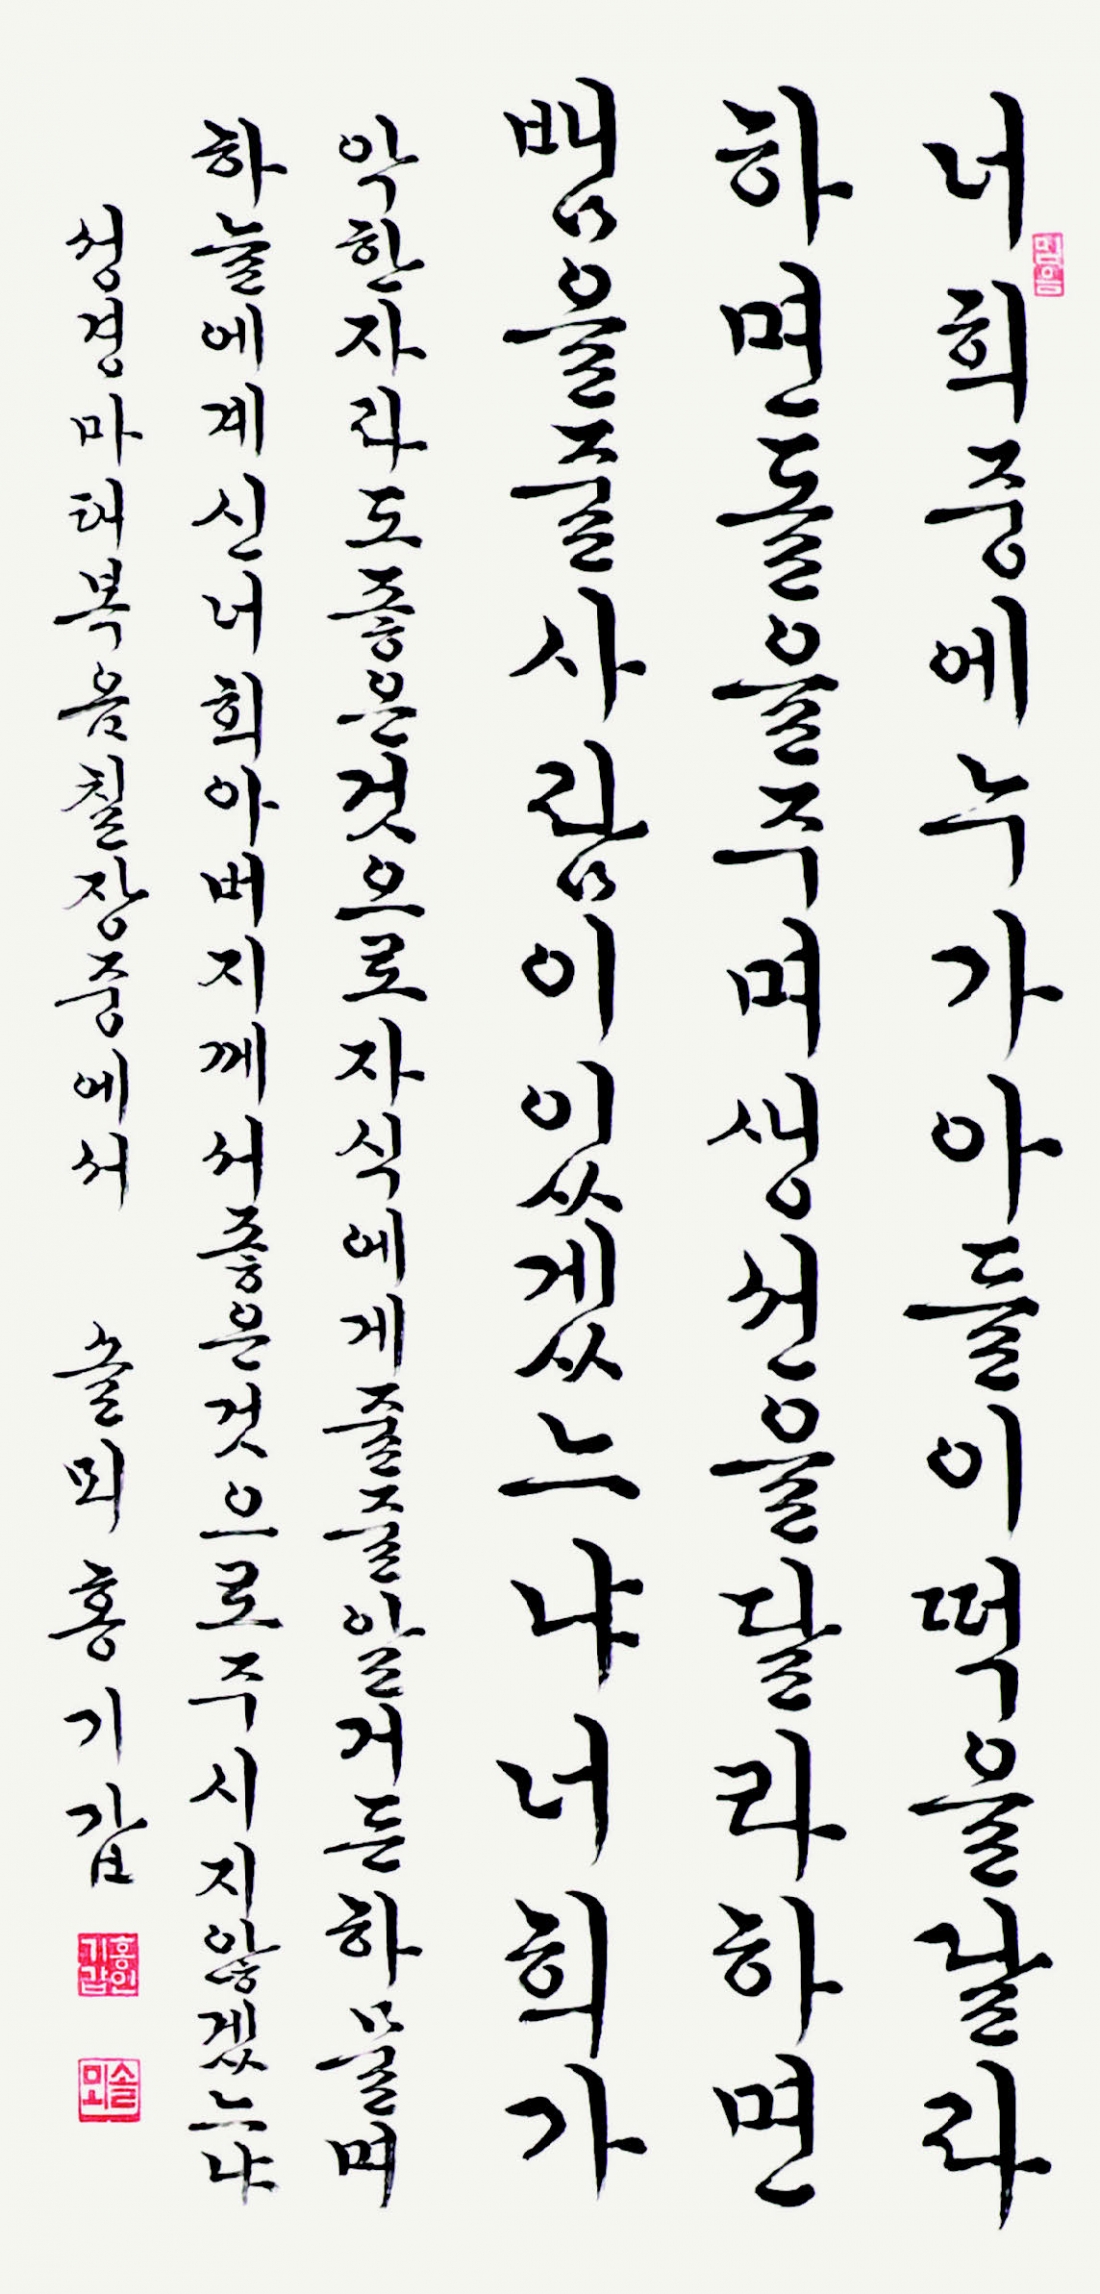 너희중에누가아들이떡을달라
하면돌을주며생선을달라하면
뱀을줄사람이있겠느냐너희가
악한자라도좋은것으로자식에게줄줄알거든하물며
하늘에계신너희아버지께서좋은것으로주시지않겠느냐
성경마태복음칠장중에서 솔뫼홍기갑
홍인기갑
솔뫼